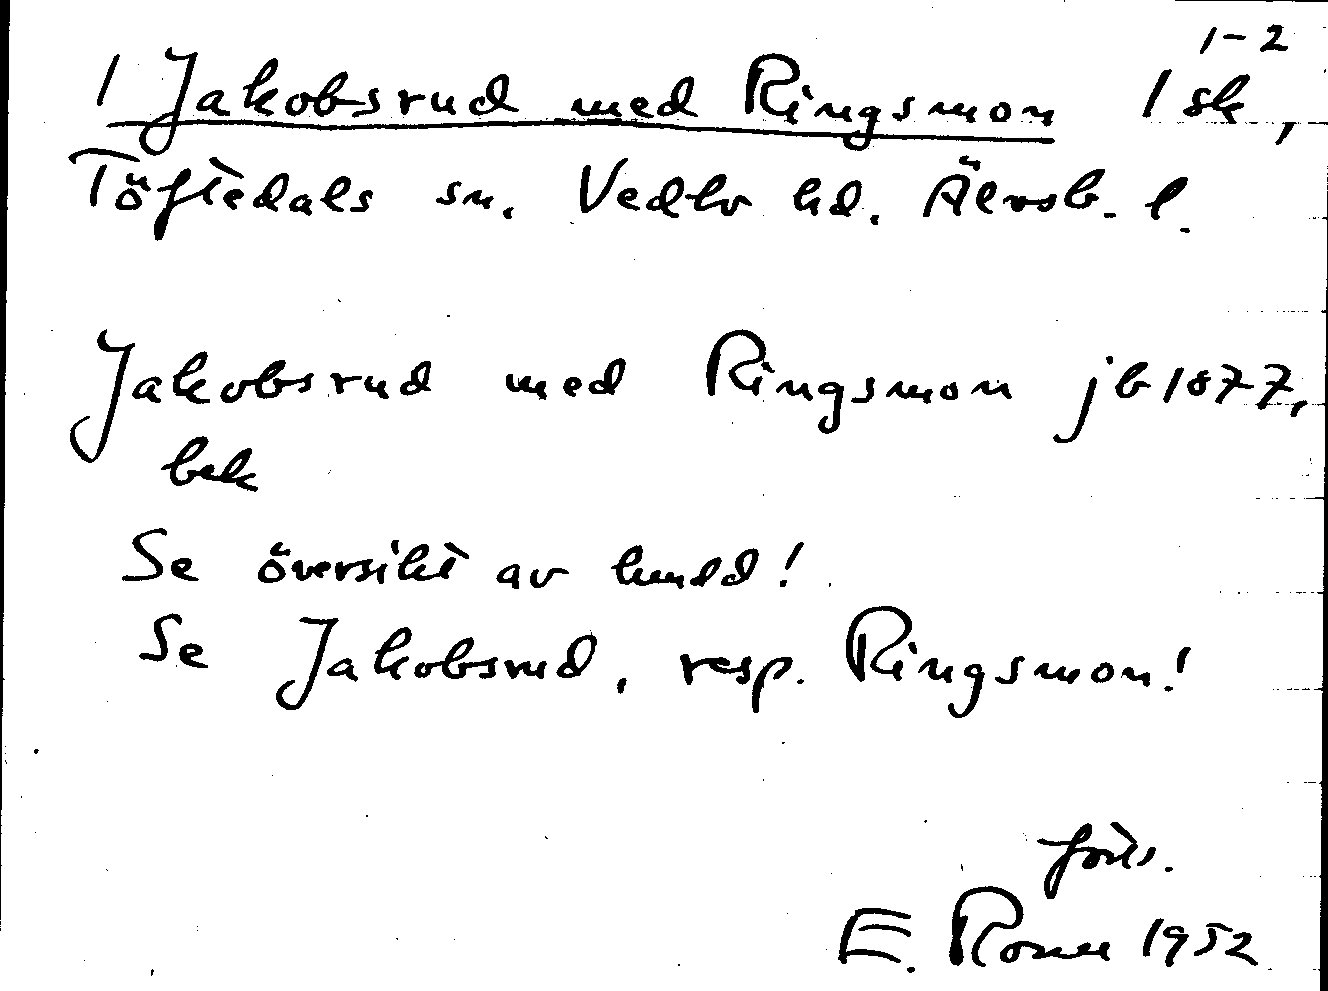 1-2
1 Jakobsrud med Ringsmon 1 sk,
Töftedals sn. Vedbo hd. Älvsb. l.
Jakobsrud med Ringsmon jb 1877,
bek
Se översikt av hmdd!
Se Jakobsrud, resp. Ringsmon!
forts.
E. 1952